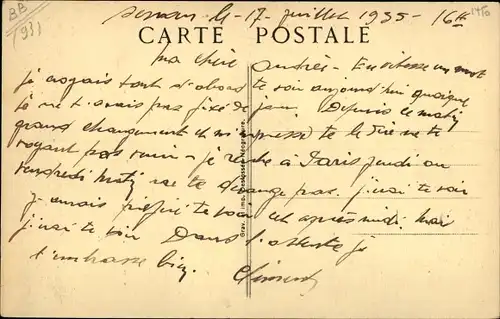 BB
1931
17 juillet 1935 - 16H
CARTE POSTALE
ma chère Andrée - En vitesse un mot
je croyais tout d'abord te voir aujourd'hui quoique
je ne t'avais pas fixé de jour. Depuis ce matin
grand changement et m'empresse de te le dire ne te
voyant pas venir - je rentre à Paris jeudi ou
vendredi matin ne te dérange pas. j'irai te voir
j'aurais préféré te voir cet après midi. Mais
j'irai te voir Dans l'attente je
t'embrasse bien.